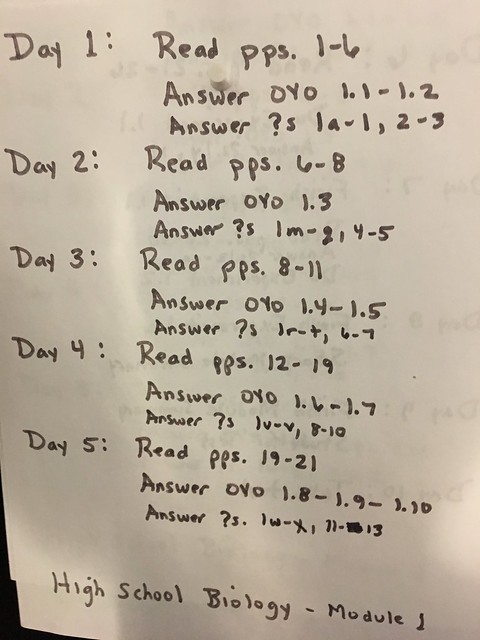 Day 1: Read pps. 1-6
Answer OYO 1.1-1.2
Answer ?s 1a-l, 2-3
Day 2: Read pps. 6-8
Answer OYO 1.3
Answer ?s 1m-q, 4-5
Day 3: Read pps. 8-11
Answer OYO 1.4-1.5
Answer ?s 1r-t, 6-7
Day 4: Read pps. 12-19
Answer OYO 1.6-1.7
Answer ?s 1u-v, 8-10
Day 5: Read pps. 19-21
Answer OYO 1.8-1.9-1.10
Answer ?s. 1w-x, 11-13
High School Biology - Module 1